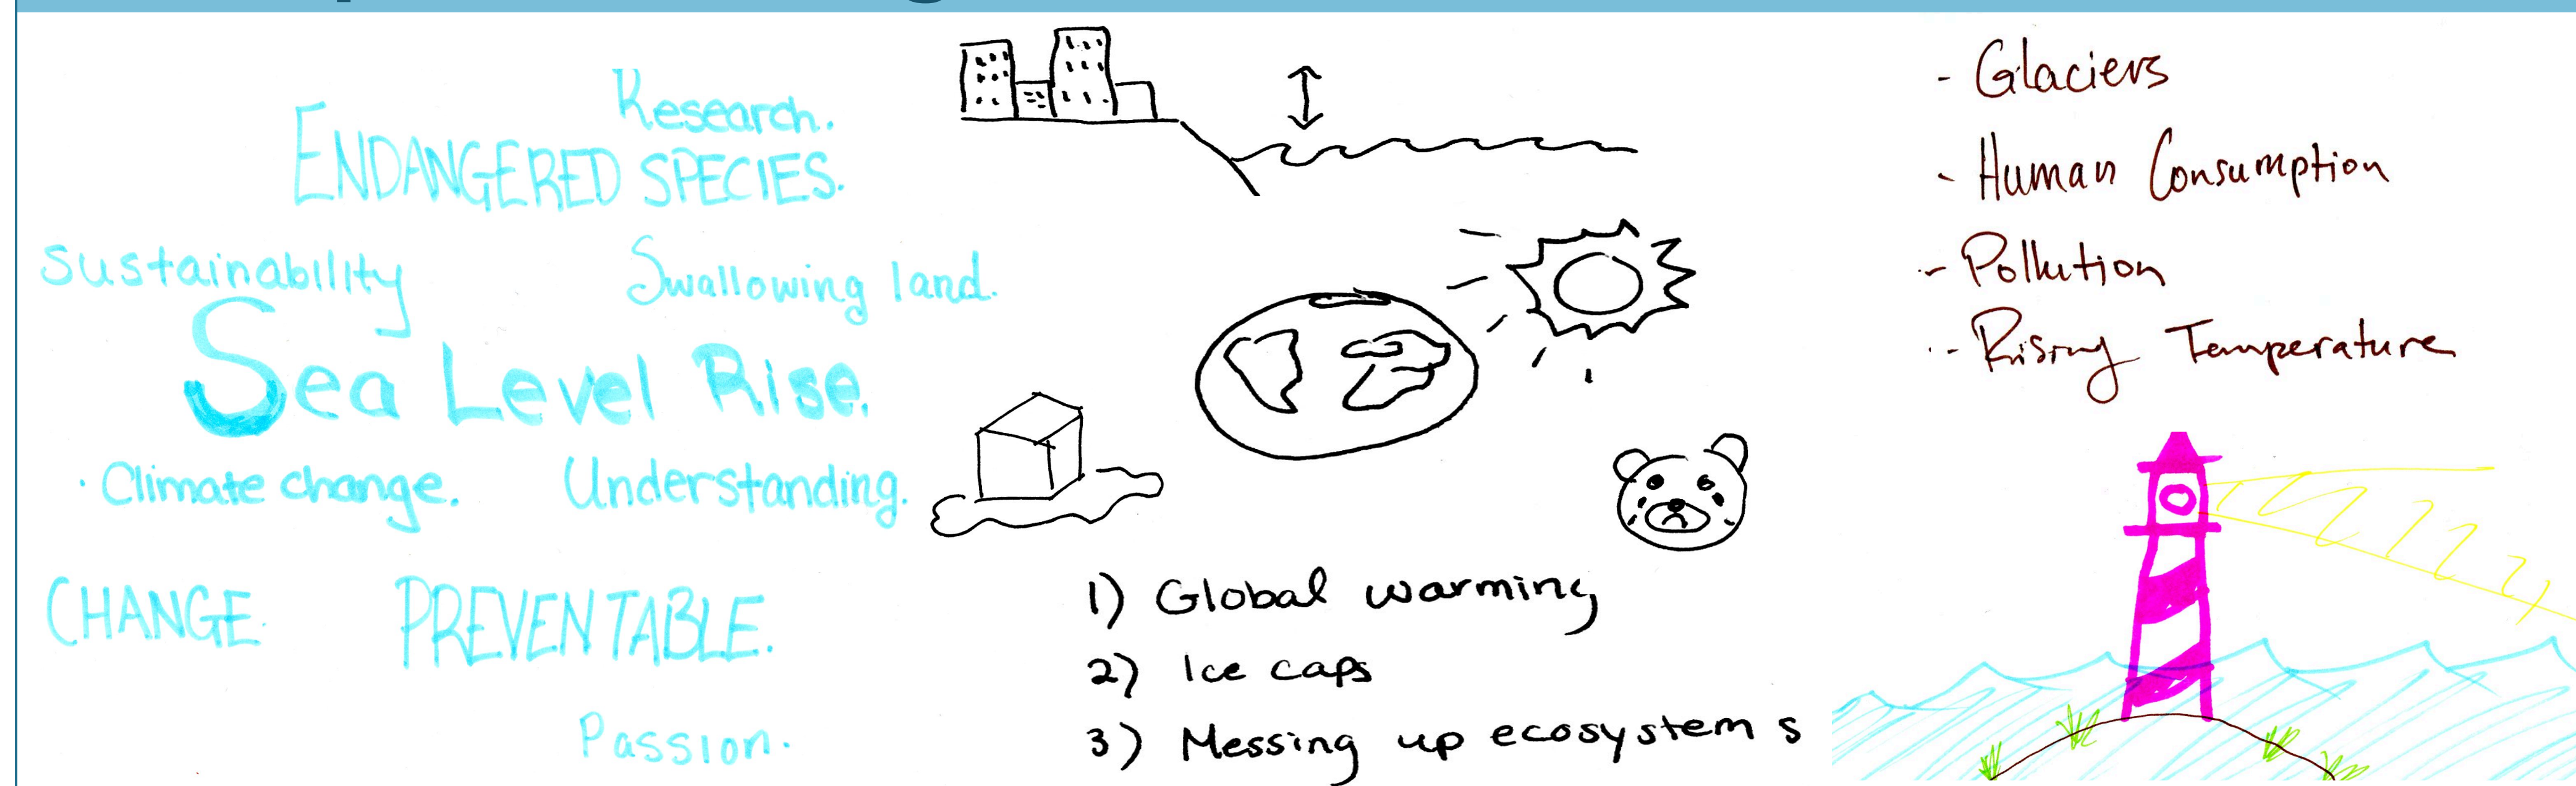 Research.
ENDANGERED SPECIES.
Sustainability
Swallowing land.
Sea Level Rise.
· Climate change.
Understanding.
CHANGE.
PREVENTABLE.
Passion.
1) Global warming
2) Ice caps
3) Messing up ecosystems
- Glaciers
- Human Consumption
- Pollution
- Rising Temperature